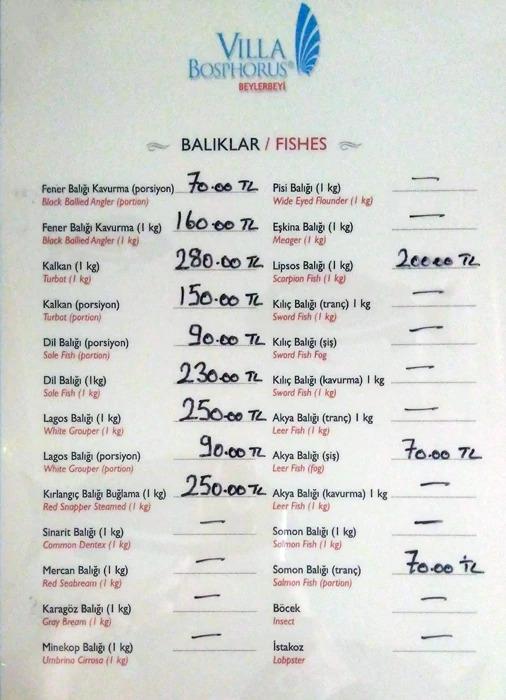 VILLA
BOSPHORUS®
BEYLERBEYİ
BALIKLAR / FISHES
Fener Balığı Kavurma (porsiyon) 70.00 TL
Black Ballied Angler (portion)
Fener Balığı Kavurma (1 kg) 160.00 TL
Black Ballied Angler (1 kg)
Kalkan (1 kg) 280.00 TL
Turbot (1 kg)
Kalkan (porsiyon) 150.00 TL
Turbot (portion)
Dil Balığı (porsiyon) 90.00 TL
Sole Fish (portion)
Dil Balığı (1kg) 230.00 TL
Sole Fish (1 kg)
Lagos Balığı (1 kg) 250.00 TL
White Grouper (1 kg)
Lagos Balığı (porsiyon) 90.00 TL
White Grouper (portion)
Kırlangıç Balığı Buğlama (1 kg) 250.00 TL
Red Snapper Steamed (1 kg)
Sinarit Balığı (1 kg) —
Common Dentex (1 kg)
Mercan Balığı (1 kg) —
Red Seabream (1 kg)
Karagöz Balığı (1 kg) —
Gray Bream (1 kg)
Minekop Balığı (1 kg) —
Umbrina Cirrosa (1 kg)
Pisi Balığı (1 kg) —
Wide Eyed Flounder (1 kg)
Eşkina Balığı (1 kg) —
Meager (1 kg)
Lipsos Balığı (1 kg) 200.00 TL
Scorpion Fish (1 kg)
Kılıç Balığı (tranç) 1 kg —
Sword Fish (1 kg)
Kılıç Balığı (şiş) —
Sword Fish Fog
Kılıç Balığı (kavurma) 1 kg —
Sword Fish (1 kg)
Akya Balığı (tranç) 1 kg —
Leer Fish (1 kg)
Akya Balığı (şiş) 70.00 TL
Leer Fish (fog)
Akya Balığı (kavurma) 1 kg —
Leer Fish (1 kg)
Somon Balığı (1 kg) —
Salmon Fish (1 kg)
Somon Balığı (tranç) 70.00 TL
Salmon Fish (portion)
Böcek —
Insect
İstakoz —
Lobpster